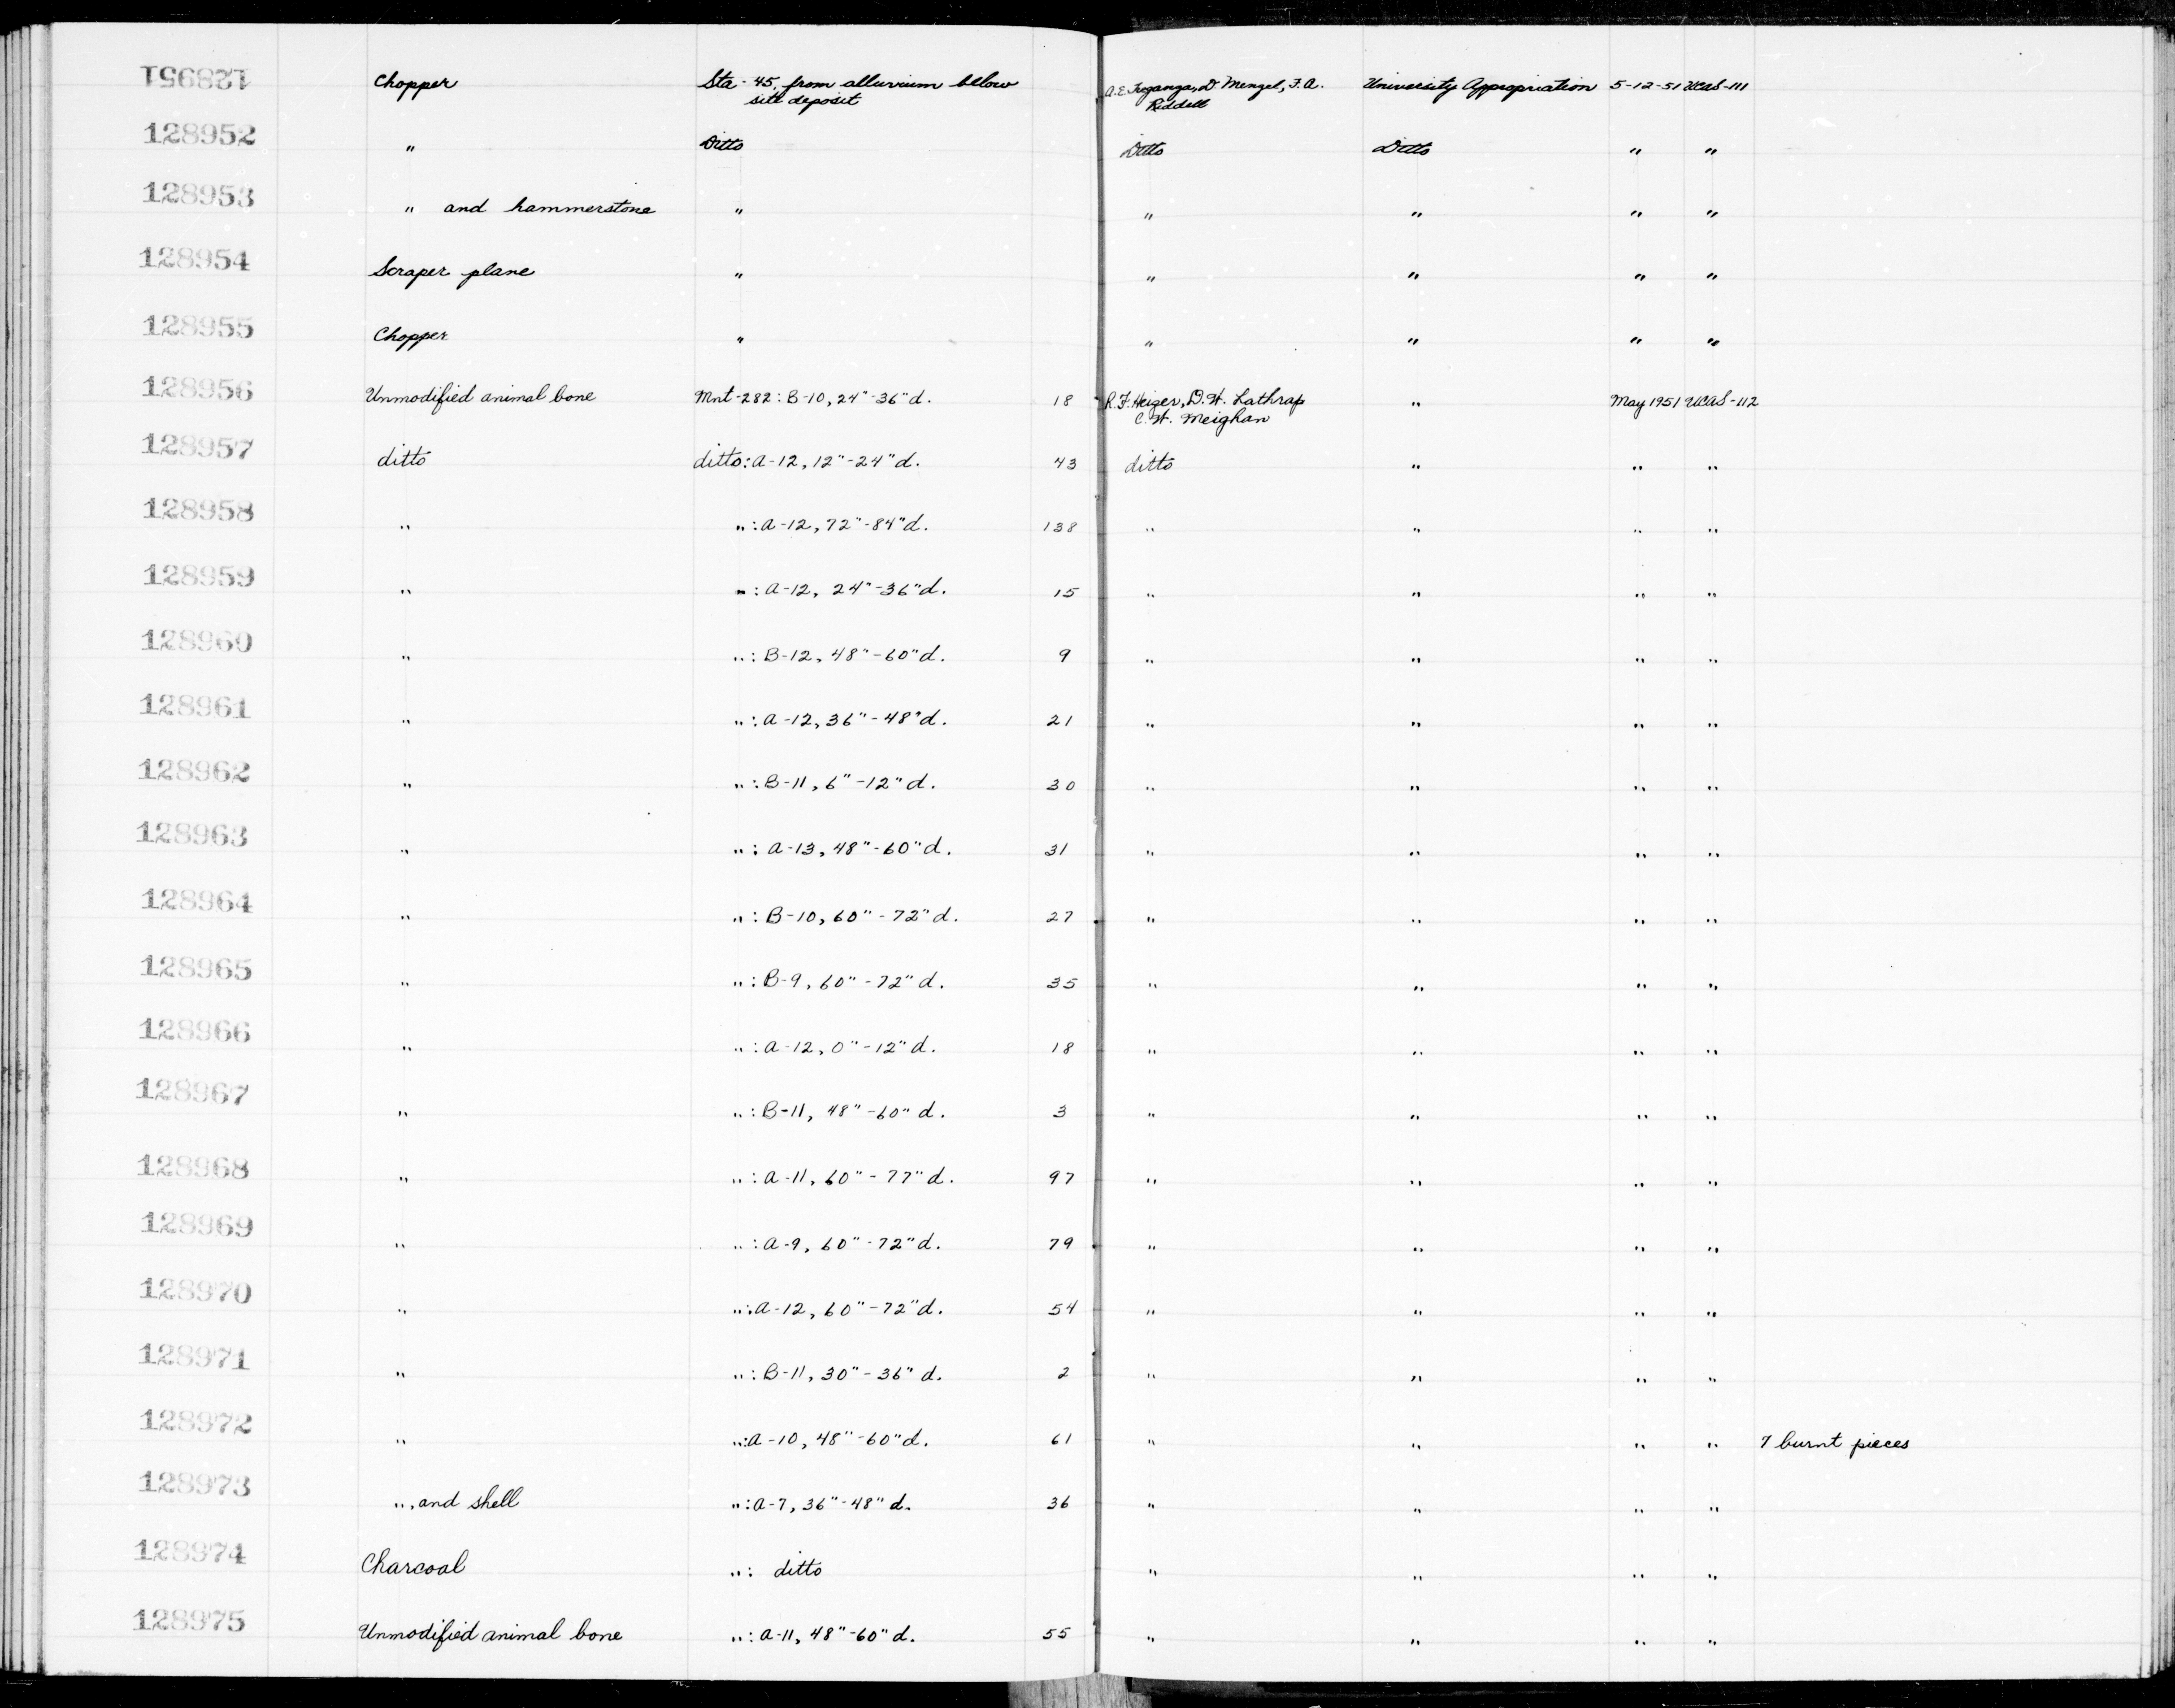 128951 Chopper Sta-45, from alluvium below A.E. Treganza, D. Menzel, F.A. University Appropriation 5-12-51 UCAS-111
site deposit Riddell
128952 " Ditto Ditto Ditto " "
128953 " and hammerstone " " " " "
128954 Scraper plane " " " " "
128955 Chopper " " " " "
128956 Unmodified animal bone Mnt-282: B-10, 24"-36"d. 18 R.F. Heizer, D.W. Lathrap " May 1951 UCAS-112
C.W. Meighan
128957 ditto ditto: A-12, 12"-24"d. 43 ditto " " "
128958 " ": A-12, 72"-84"d. 138 " " " "
128959 " ": A-12, 24"-36"d. 15 " " " "
128960 " ": B-12, 48"-60"d. 9 " " " "
128961 " ": A-12, 36"-48"d. 21 " " " "
128962 " ": B-11, 6"-12"d. 30 " " " "
128963 " ": A-13, 48"-60"d. 31 " " " "
128964 " ": B-10, 60"-72"d. 27 " " " "
128965 " ": B-9, 60"-72"d. 35 " " " "
128966 " ": A-12, 0"-12"d. 18 " " " "
128967 " ": B-11, 48"-60"d. 3 " " " "
128968 " ": A-11, 60"-77"d. 97 " " " "
128969 " ": A-9, 60"-72"d. 79 " " " "
128970 " ": A-12, 60"-72"d. 54 " " " "
128971 " ": B-11, 30"-36"d. 2 " " " "
128972 " ": A-10, 48"-60"d. 61 " " " " 7 burnt pieces
128973 ", and shell ": A-7, 36"-48"d. 36 " " " "
128974 Charcoal ": ditto " " " "
128975 Unmodified animal bone ": A-11, 48"-60"d. 55 " " " "